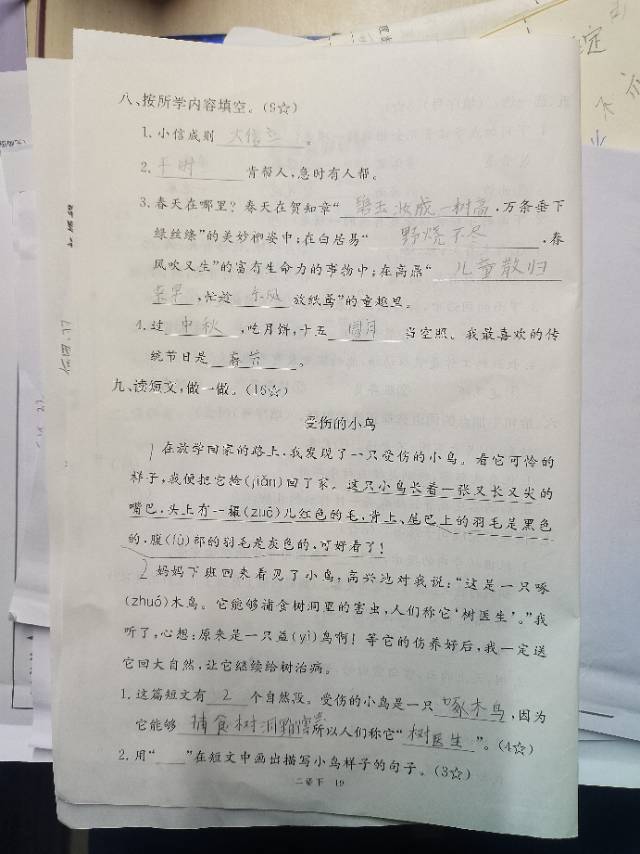 八、按所学内容填空。(8☆)
1. 小信成则 大信立 。
2. 平时 肯帮人,急时有人帮。
3. 春天在哪里?春天在贺知章“ 碧玉妆成一树高 ,万条垂下
绿丝绦”的美妙柳姿中;在白居易“ 野烧不尽 ,春
风吹又生”的富有生命力的事物中;在高鼎“ 儿童散归
来早 ,忙趁 东风 放纸鸢”的童趣里。
4. 过 中秋 ,吃月饼,十五 圆月 当空照。我最喜欢的传
统节日是 春节 。
九、读短文,做一做。(16☆)
受伤的小鸟
1 在放学回家的路上,我发现了一只受伤的小鸟。看它可怜的
样子,我便把它捡(jiǎn)回了家。这只小鸟长着一张又长又尖的
嘴巴,头上有一撮(zuǒ)儿红色的毛,背上、尾巴上的羽毛是黑色
的,腹(fù)部的羽毛是灰色的,可好看了!
2 妈妈下班回来看见了小鸟,高兴地对我说:“这是一只啄
(zhuó)木鸟。它能够捕食树洞里的害虫,人们称它‘树医生’。”我
听了,心想:原来是一只益(yì)鸟啊!等它的伤养好后,我一定送
它回大自然,让它继续给树治病。
1. 这篇短文有 2 个自然段。受伤的小鸟是一只 啄木鸟 ,因为
它能够 捕食树洞里的害虫 所以人们称它“ 树医生 ”。(4☆)
2. 用“——”在短文中画出描写小鸟样子的句子。(3☆)
二语下 19